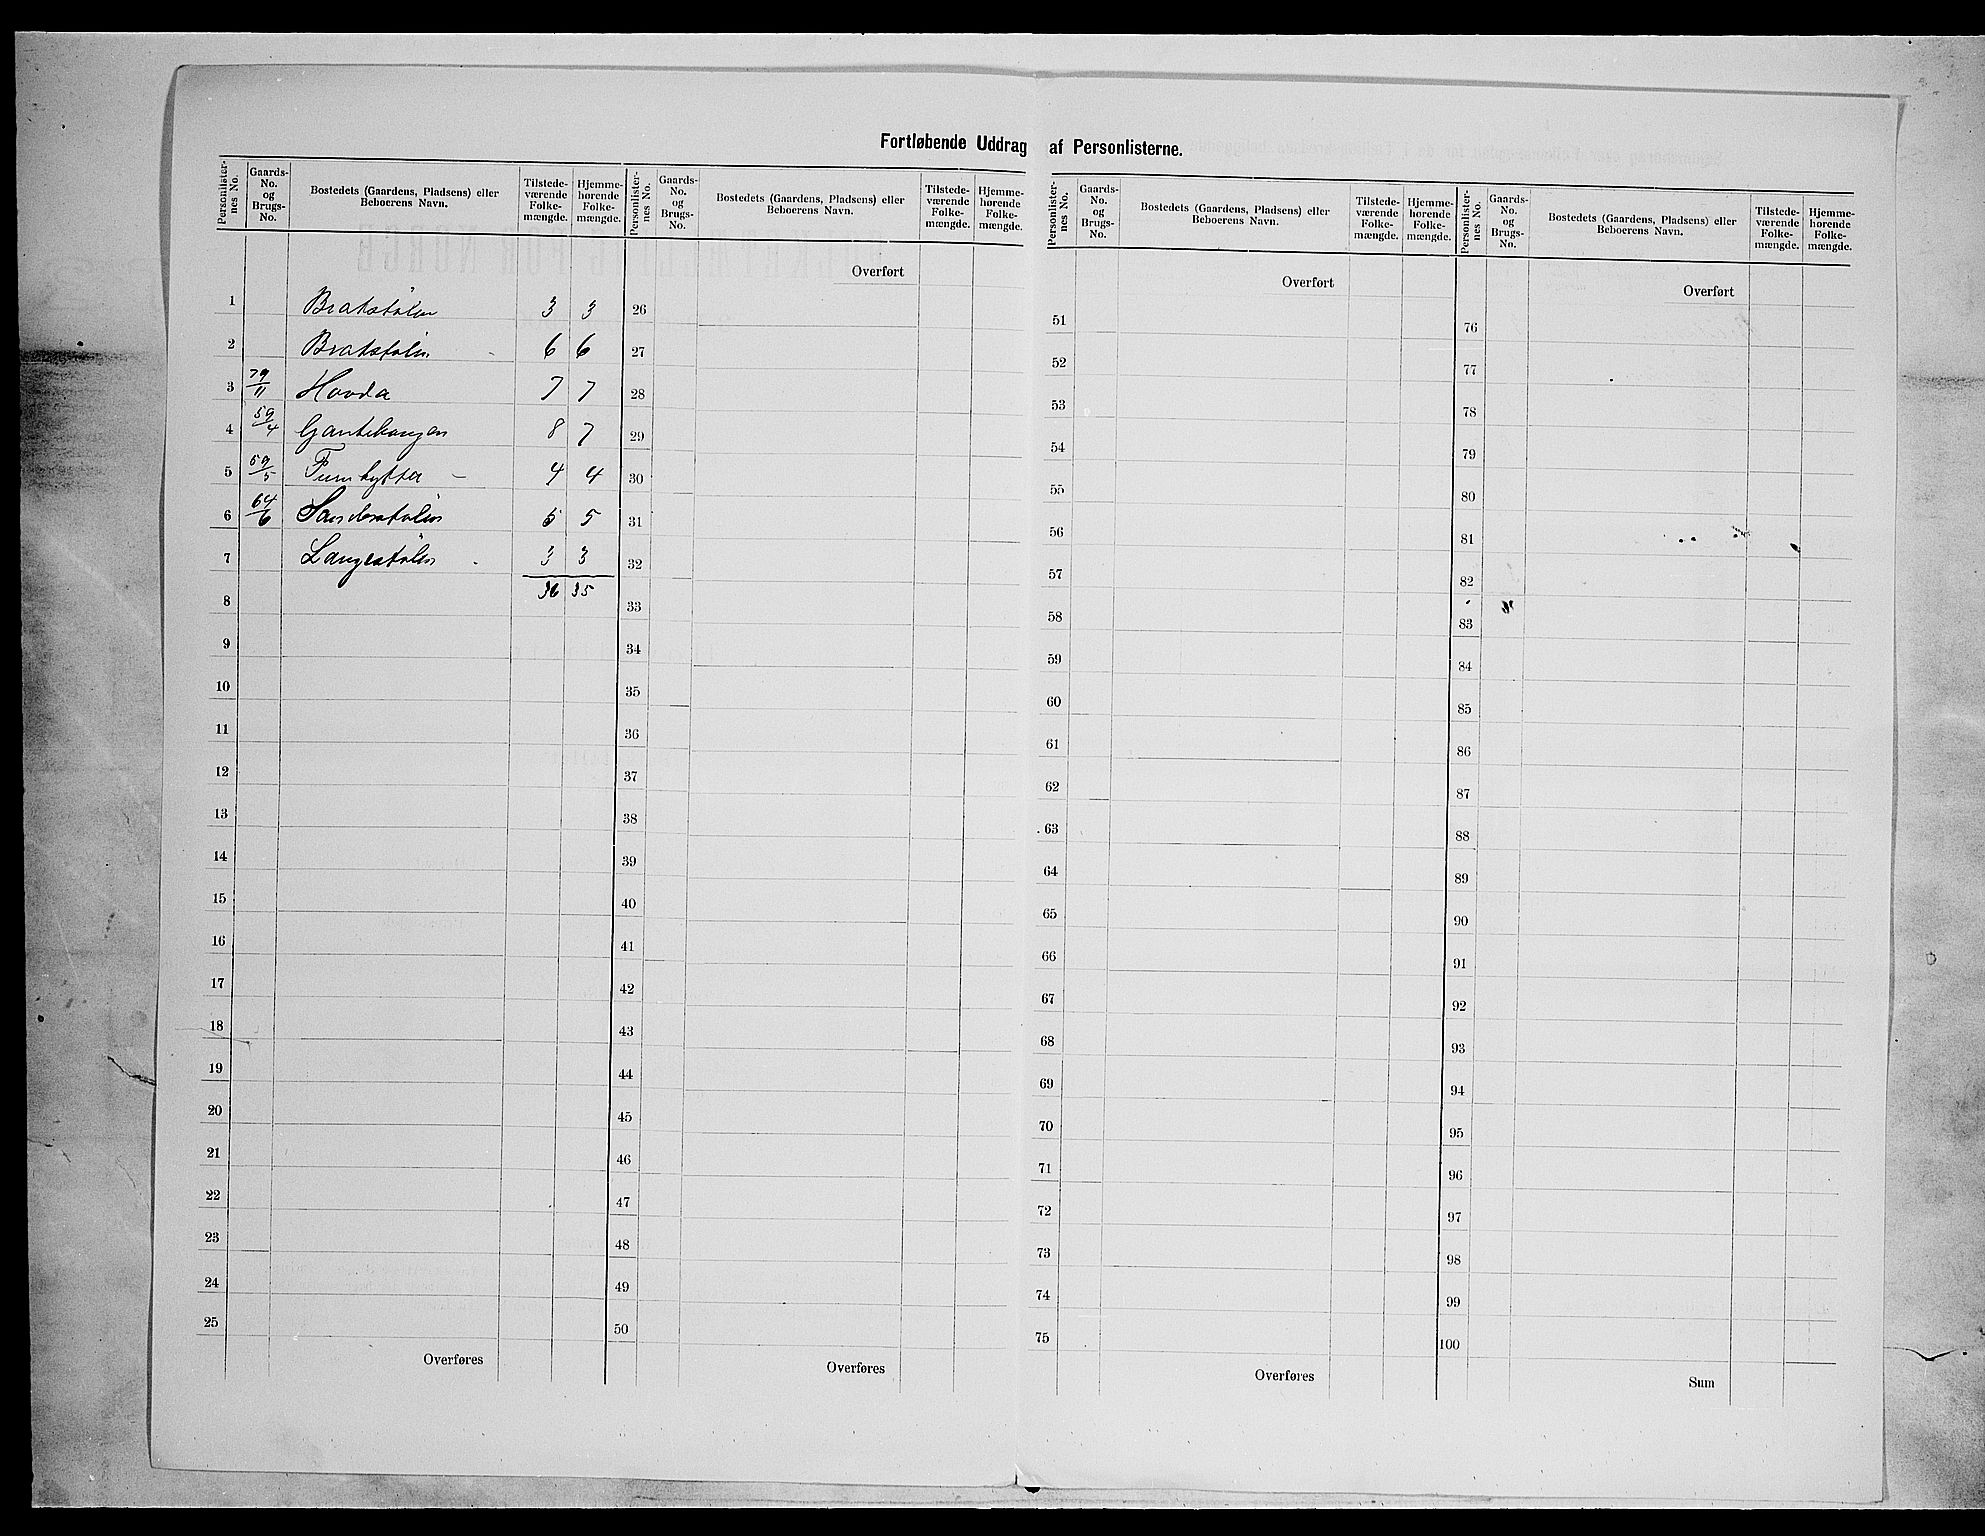 Fortløbende Uddrag af Personlisterne.
Personlister-nes No. Gaards-No. og Brugs-No. Bostedets (Gaardens, Pladsens) eller Beboerens Navn. Tilstede-værende Folke-mængde. Hjemme-hørende Folke-mængde.
1 Bratastølen 3 3
2 Bratastølen 6 6
3 79/11 Hovda 7 7
4 59/4 Gantehaugen 8 7
5 59/5 Furuhytta 4 4
6 64/6 Sanderstølen 5 5
7 Langestølen 3 3
8 36 35
9
10
11
12
13
14
15
16
17
18
19
20
21
22
23
24
25
Overføres
Personlister-nes No. Gaards-No. og Brugs-No. Bostedets (Gaardens, Pladsens) eller Beboerens Navn. Tilstede-værende Folke-mængde. Hjemme-hørende Folke-mængde.
Overført
26
27
28
29
30
31
32
33
34
35
36
37
38
39
40
41
42
43
44
45
46
47
48
49
50
Overføres
Personlister-nes No. Gaards-No. og Brugs-No. Bostedets (Gaardens, Pladsens) eller Beboerens Navn. Tilstede-værende Folke-mængde. Hjemme-hørende Folke-mængde.
Overført
51
52
53
54
55
56
57
58
59
60
61
62
63
64
65
66
67
68
69
70
71
72
73
74
75
Overføres
Personlister-nes No. Gaards-No. og Brugs-No. Bostedets (Gaardens, Pladsens) eller Beboerens Navn. Tilstede-værende Folke-mængde. Hjemme-hørende Folke-mængde.
Overført
76
77
78
79
80
81
82
83
84
85
86
87
88
89
90
91
92
93
94
95
96
97
98
99
100
Sum